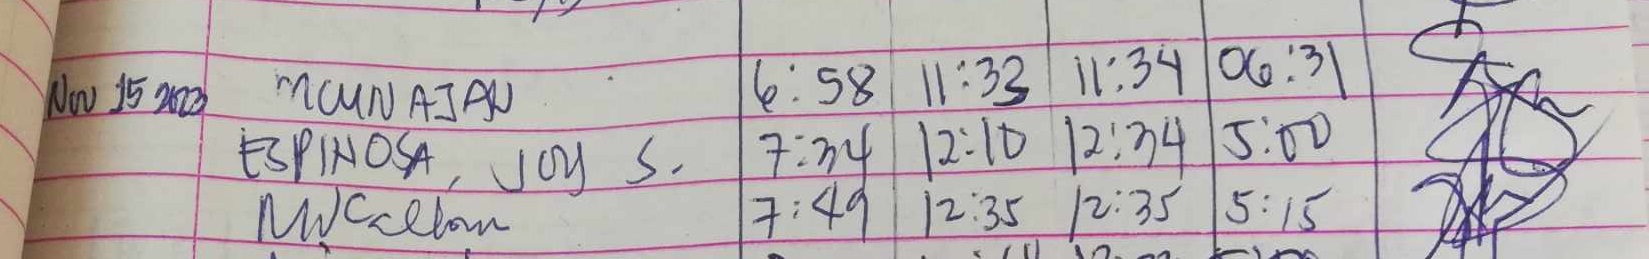 Nov 15 2023 MCUNAJAN 6:58 11:33 11:34 06:31
ESPINOSA, JOY S. 7:34 12:10 12:34 5:00
7:49 12:35 12:35 5:15